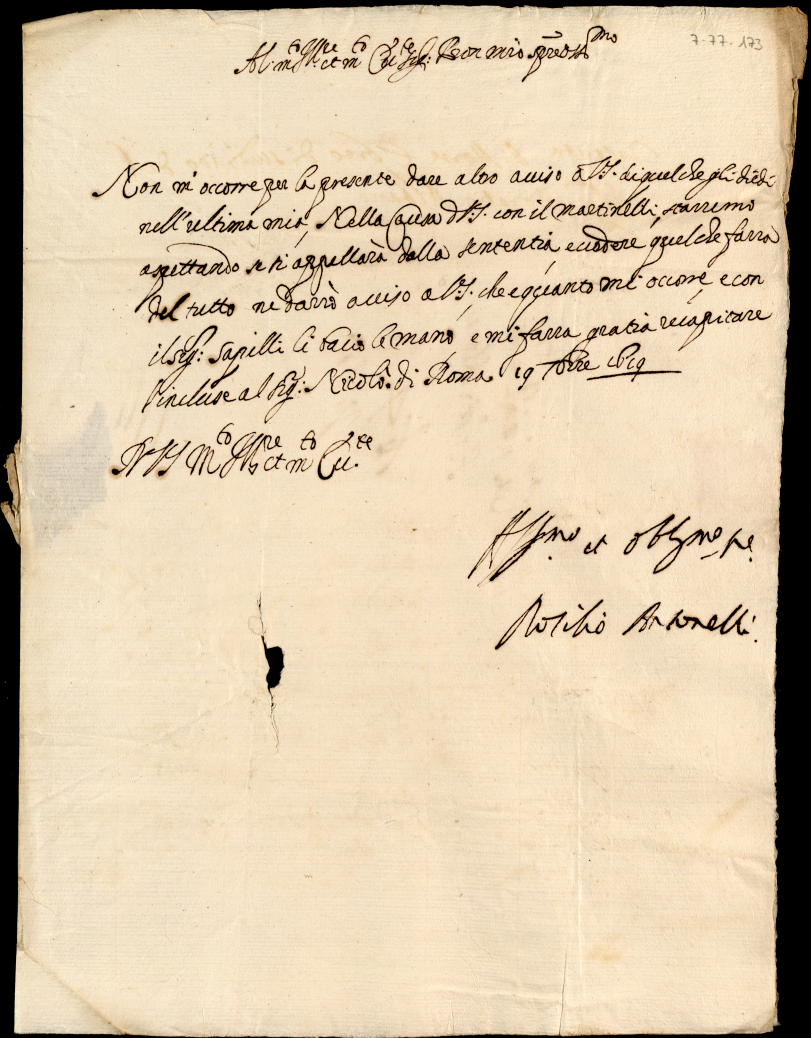 7-77-173
Al m.to Ill.re et m.to Ecc.te Sig.r Pron mio
Non m'occorre per la presente dare altro aviso a V.S. di quel che gli diedi
nell'ultima mia, Nella Causa di V.S. con il martinelli, starremo
aspettando se si appellarà dalla sententia e vedere quel che farra
del tutto ne darrò aviso a V.S. che è quanto mi occorre e con
il sig: Sapilli li bacio le mano, e mi farra gratia recapitare
l'incluse al sig: Nicolò. di Roma 19
D V.S M.to Ill.re et m.to Ecc.te
Aff.mo et Obbl.mo se.
Antonelli.